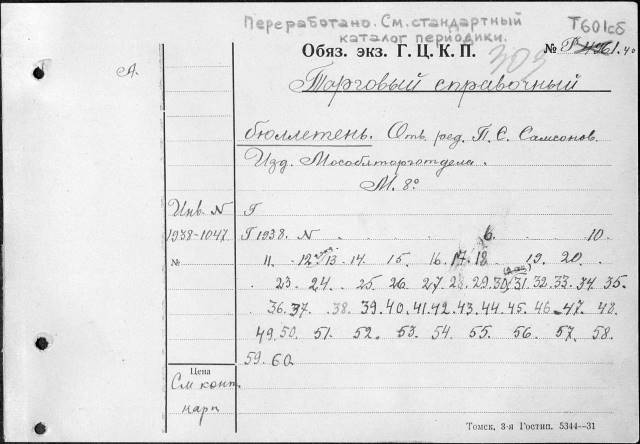 Переработано. См. стандартный
каталог периодики.
Т601сб
Обяз. экз. Г. Ц. К. П.
№
303
А.
Торговый справочный
бюллетень. Отв. ред. П. С. Самсонов.
Изд. Мособлторготдела.
М. 8°
Инв. N Г
1938-1047 Г 1938. N 6 10.
№ 11. 12 13. 14. 15. 16. 17. 18 19. 20.
23. 24. 25. 26. 27. 28. 29. 30. 31. 32. 33. 34. 35.
36. 37. 38. 39. 40. 41. 42. 43. 44. 45. 46. 47. 48.
49. 50. 51. 52. 53. 54. 55. 56. 57. 58.
59. 60.
Цена
См конт.
карт
Томск, 3-я Гостип. 5344—31